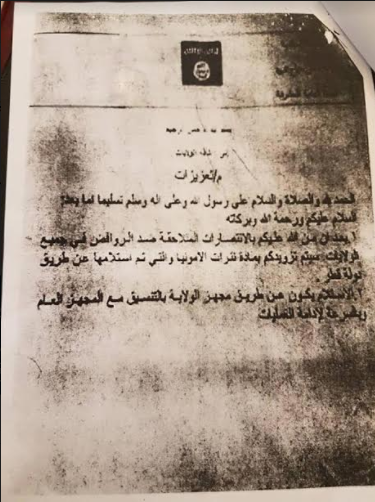 لا اله الا الله
بسم الله الرحمن الرحيم
الى كافة الولايات
م/تعزيزات
الحمد لله والصلاة والسلام على رسول الله وعلى اله وسلم تسليما اما بعد:
السلام عليكم ورحمة الله وبركاته
١.بعد ان من الله عليكم بالانتصارات المتلاحقة ضد الروافض في جميع
الولايات سيتم تزويدكم بمادة نترات الامونيا والتي تم استلامها عن طريق
دولة قطر
٢.الاستلام يكون عن طريق مجهز الولاية بالتنسيق مع المجهز العام
وبالسرعة لإدامة العمليات